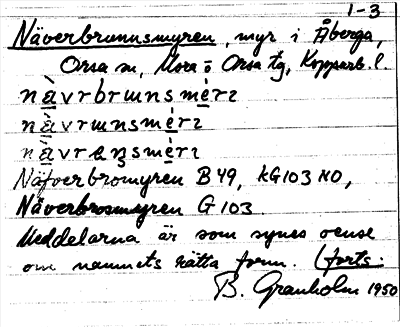 1-3
Näverbrunnsmyren, myr i Åberga,
Orsa sn, Mora o Orsa tg, Kopparb. l.
nàvrbrɯnsmèrɪ
nàvrɯnsmèrɪ
nàvrɑnsmèrɪ
Näfverbromyren B 49, KG103 NO,
Näverbrosmyren G 103
Meddelarna är som synes oense
om namnets rätta form. (forts.
B. Granholm 1950